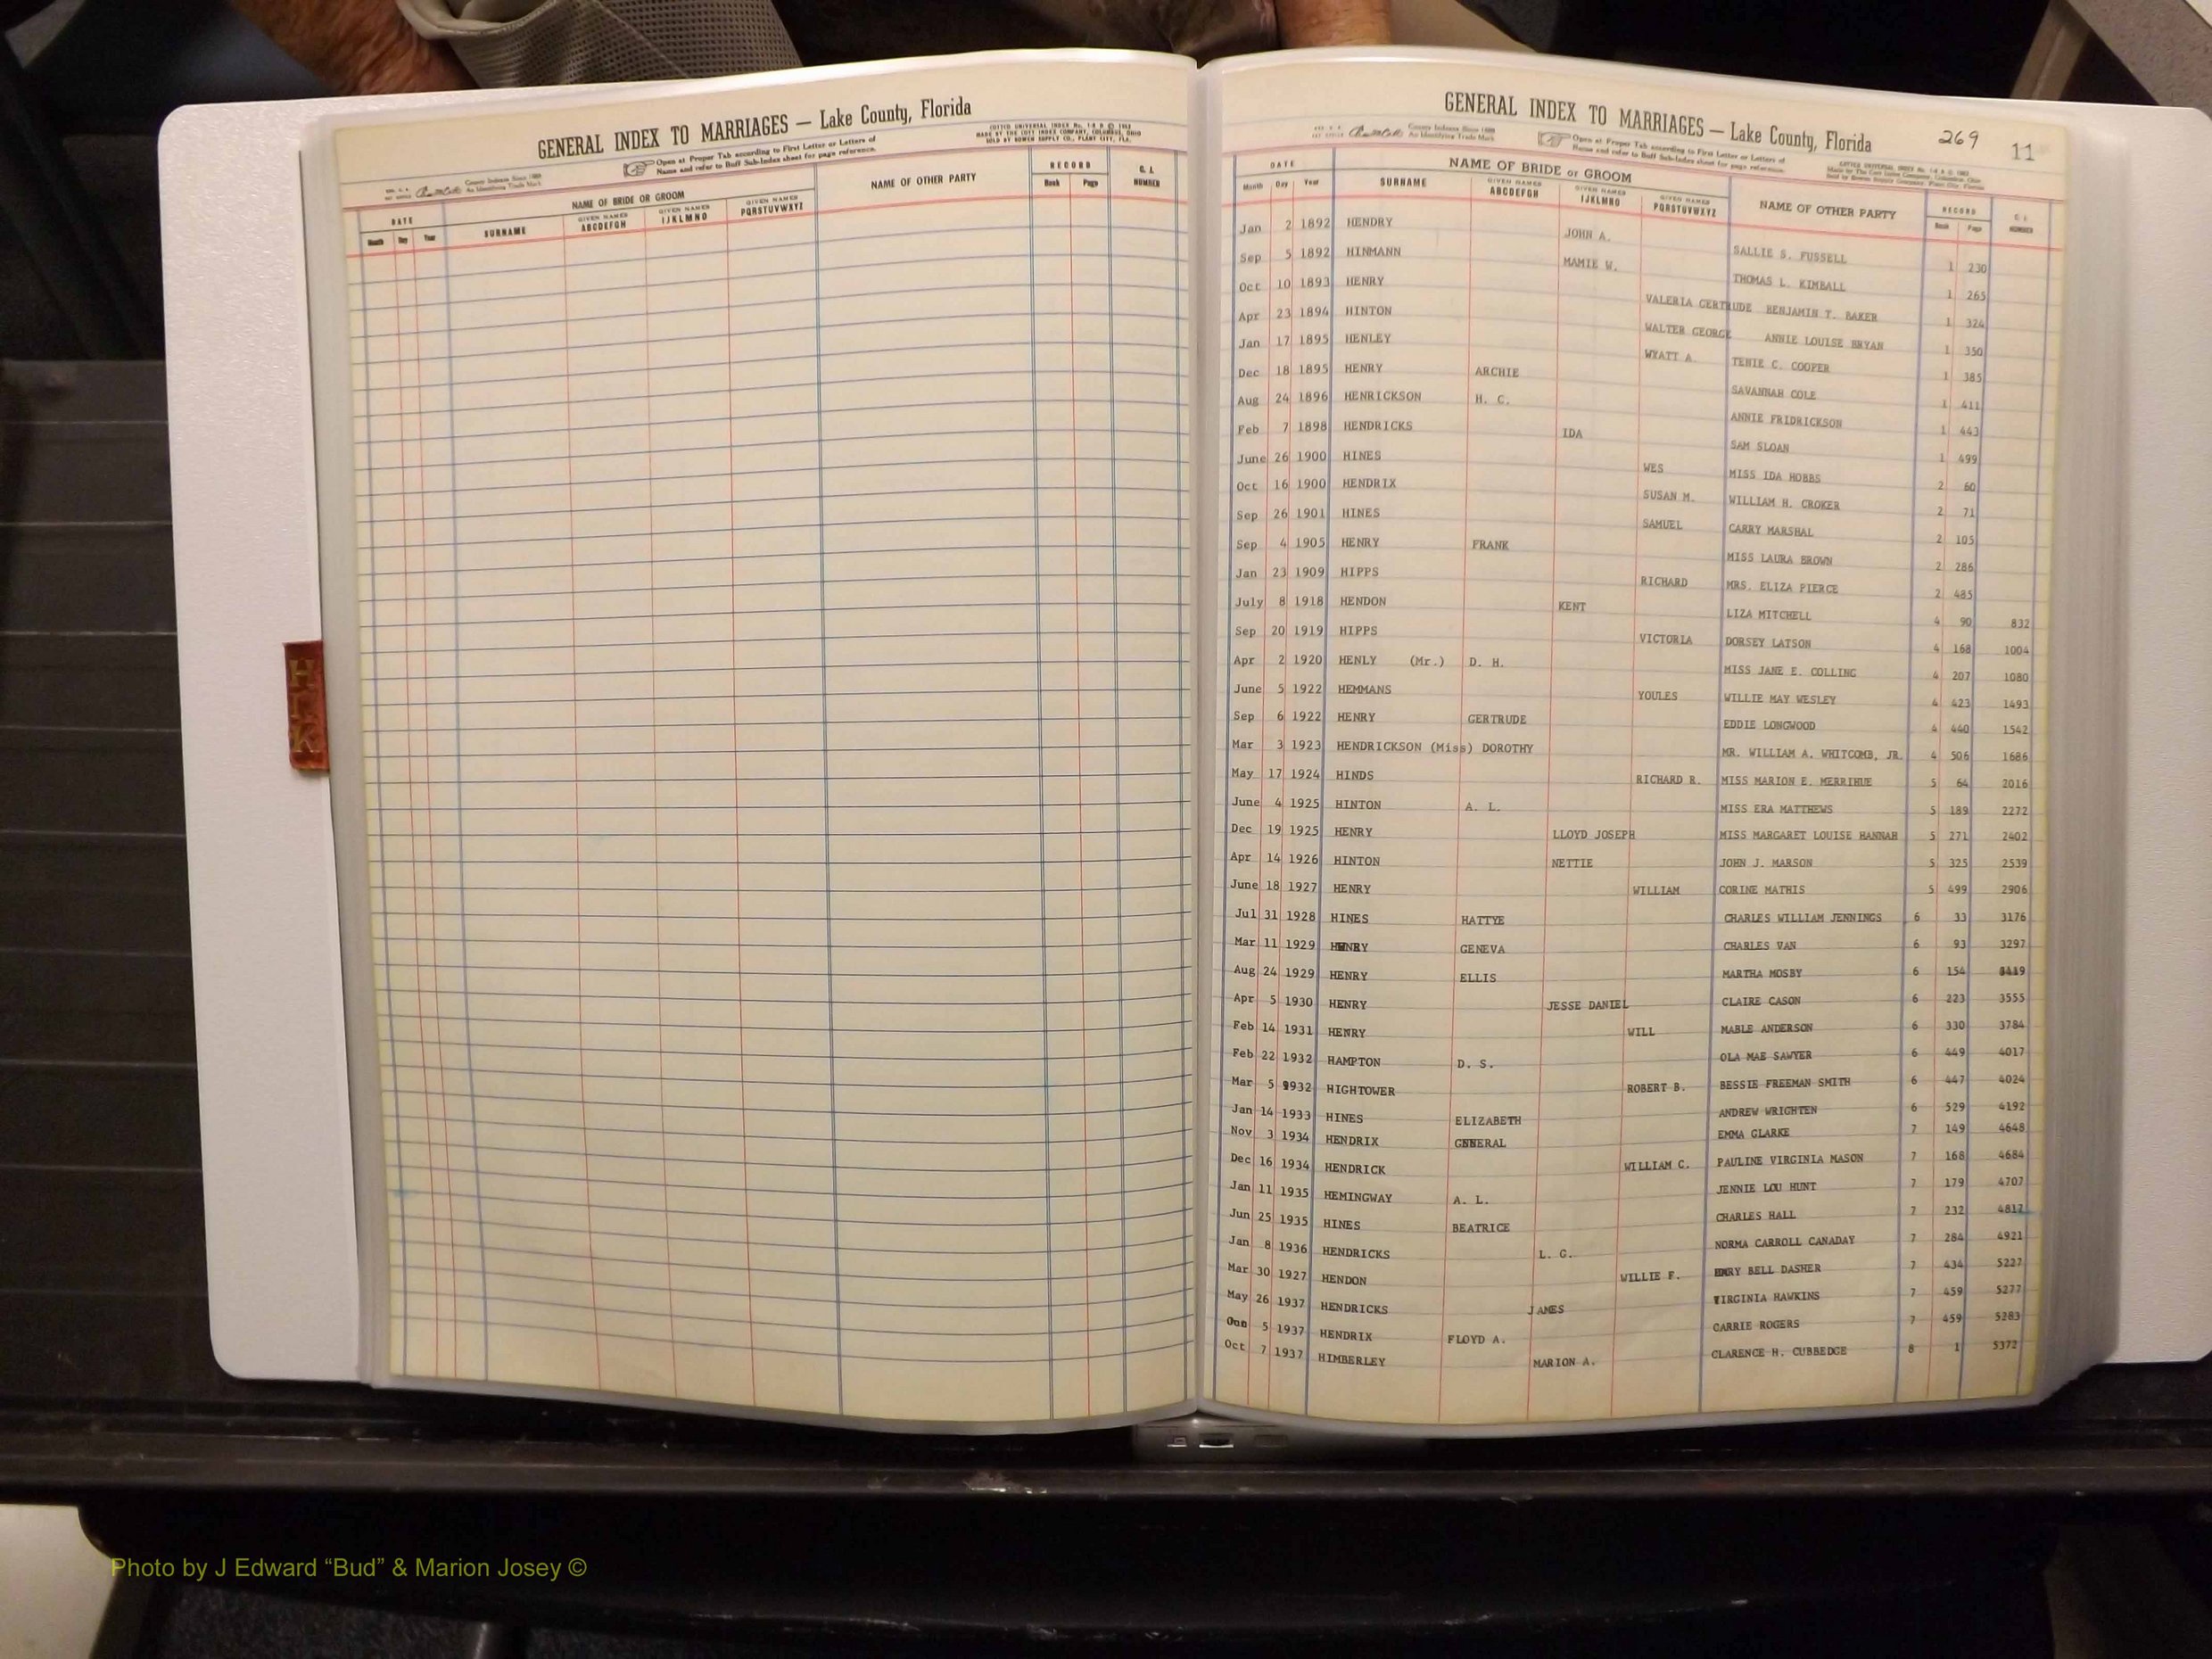 GENERAL INDEX TO MARRIAGES — Lake County, Florida
Open at Proper Tab according to First Letter or Letters of
Name and refer to Buff Sub-Index sheet for page reference.
COTTCO UNIVERSAL INDEX
MADE BY THE COTT INDEX COMPANY, COLUMBUS, OHIO
SOLD BY BOWEN SUPPLY CO., PLANT CITY, FLA.
County Indexes Since 1888
An Identifying Trade Mark
DATE NAME OF BRIDE OR GROOM NAME OF OTHER PARTY RECORD C. L. NUMBER
Month Day Year SURNAME GIVEN NAMES ABCDEFGH GIVEN NAMES IJKLMNO GIVEN NAMES PQRSTUVWXYZ Book Page
H
I
K
GENERAL INDEX TO MARRIAGES — Lake County, Florida 269 11
County Indexes Since 1888
An Identifying Trade Mark
Open at Proper Tab according to First Letter or Letters of
Name and refer to Buff Sub-Index sheet for page reference.
DATE NAME OF BRIDE or GROOM NAME OF OTHER PARTY RECORD C. L. NUMBER
Month Day Year SURNAME GIVEN NAMES ABCDEFGH GIVEN NAMES IJKLMNO GIVEN NAMES PQRSTUVWXYZ Book Page
Jan 2 1892 HENDRY JOHN A. SALLIE S. FUSSELL 1 230
Sep 5 1892 HINMANN MAMIE W. THOMAS L. KIMBALL 1 265
Oct 10 1893 HENRY VALERIA GERTRUDE BENJAMIN T. BAKER 1 324
Apr 23 1894 HINTON WALTER GEORGE ANNIE LOUISE BRYAN 1 350
Jan 17 1895 HENLEY WYATT A. TENIE C. COOPER 1 385
Dec 18 1895 HENRY ARCHIE SAVANNAH COLE 1 411
Aug 24 1896 HENRICKSON H. C. ANNIE FRIDRICKSON 1 443
Feb 7 1898 HENDRICKS IDA SAM SLOAN 1 499
June 26 1900 HINES WES MISS IDA HOBBS 2 60
Oct 16 1900 HENDRIX SUSAN M. WILLIAM H. CROKER 2 71
Sep 26 1901 HINES SAMUEL CARRY MARSHAL 2 105
Sep 4 1905 HENRY FRANK MISS LAURA BROWN 2 286
Jan 23 1909 HIPPS RICHARD MRS. ELIZA PIERCE 2 485
July 8 1918 HENDON KENT LIZA MITCHELL 4 90 832
Sep 20 1919 HIPPS VICTORIA DORSEY LATSON 4 168 1004
Apr 2 1920 HENLY (Mr.) D. H. MISS JANE E. COLLING 4 207 1080
June 5 1922 HEMMANS YOULES WILLIE MAY WESLEY 4 423 1493
Sep 6 1922 HENRY GERTRUDE EDDIE LONGWOOD 4 440 1542
Mar 3 1923 HENDRICKSON (Miss) DOROTHY MR. WILLIAM A. WHITCOMB, JR. 4 506 1686
May 17 1924 HINDS RICHARD R. MISS MARION E. MERRIHUE 5 64 2016
June 4 1925 HINTON A. L. MISS ERA MATTHEWS 5 189 2272
Dec 19 1925 HENRY LLOYD JOSEPH MISS MARGARET LOUISE HANNAH 5 271 2402
Apr 14 1926 HINTON NETTIE JOHN J. MARSON 5 325 2539
June 18 1927 HENRY WILLIAM CORINE MATHIS 5 499 2906
Jul 31 1928 HINES HATTYE CHARLES WILLIAM JENNINGS 6 33 3176
Mar 11 1929 HENRY GENEVA CHARLES VAN 6 93 3297
Aug 24 1929 HENRY ELLIS MARTHA MOSBY 6 154 3419
Apr 5 1930 HENRY JESSE DANIEL CLAIRE CASON 6 223 3555
Feb 14 1931 HENRY WILL MABLE ANDERSON 6 330 3784
Feb 22 1932 HAMPTON D. S. OLA MAE SAWYER 6 449 4017
Mar 5 1932 HIGHTOWER ROBERT B. BESSIE FREEMAN SMITH 6 447 4024
Jan 14 1933 HINES ELIZABETH ANDREW WRIGHTEN 6 529 4192
Nov 3 1934 HENDRIX GENERAL EMMA GLARKE 7 149 4648
Dec 16 1934 HENDRICK WILLIAM C. PAULINE VIRGINIA MASON 7 168 4684
Jan 11 1935 HEMINGWAY A. L. JENNIE LOU HUNT 7 179 4707
Jun 25 1935 HINES BEATRICE CHARLES HALL 7 232 4817
Jan 8 1936 HENDRICKS L. G. NORMA CARROLL CANADAY 7 284 4921
Mar 30 1927 HENDON WILLIE F. BELL DASHER 7 434 5227
May 26 1937 HENDRICKS JAMES VIRGINIA HAWKINS 7 459 5277
5 1937 HENDRIX FLOYD A. CARRIE ROGERS 7 459 5283
Oct 7 1937 HIMBERLEY MARION A. CLARENCE H. CUBBEDGE 8 1 5372
Photo by J Edward “Bud” & Marion Josey ©